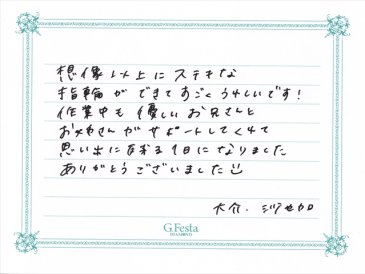 想像以上にステキな
指輪ができてすごくうれしいです!
作業中も優しいお兄さんと
おねえさんがサポートしてくれて
思い出に残る1日になりました
ありがとうございました
大介.
G.Festa